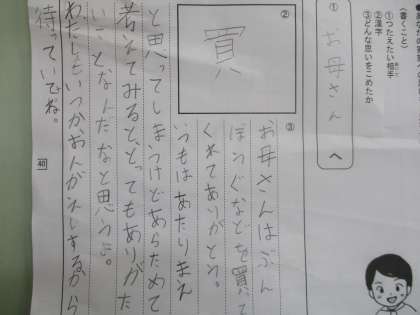 〈書くこと〉
①つたえたい相手
②漢字
③どんな思いをこめたか
①
お母さん
へ
②
買
③
お母さんはぶん
ぼうぐなどを買って
くれてありがとう。
いつもはあたりまえ
と思ってしまうけどあらためて
考えてみると、とってもありがた
いことなんだなと思うよ。
わたしもいつかおんがえしするから
待っていてね。